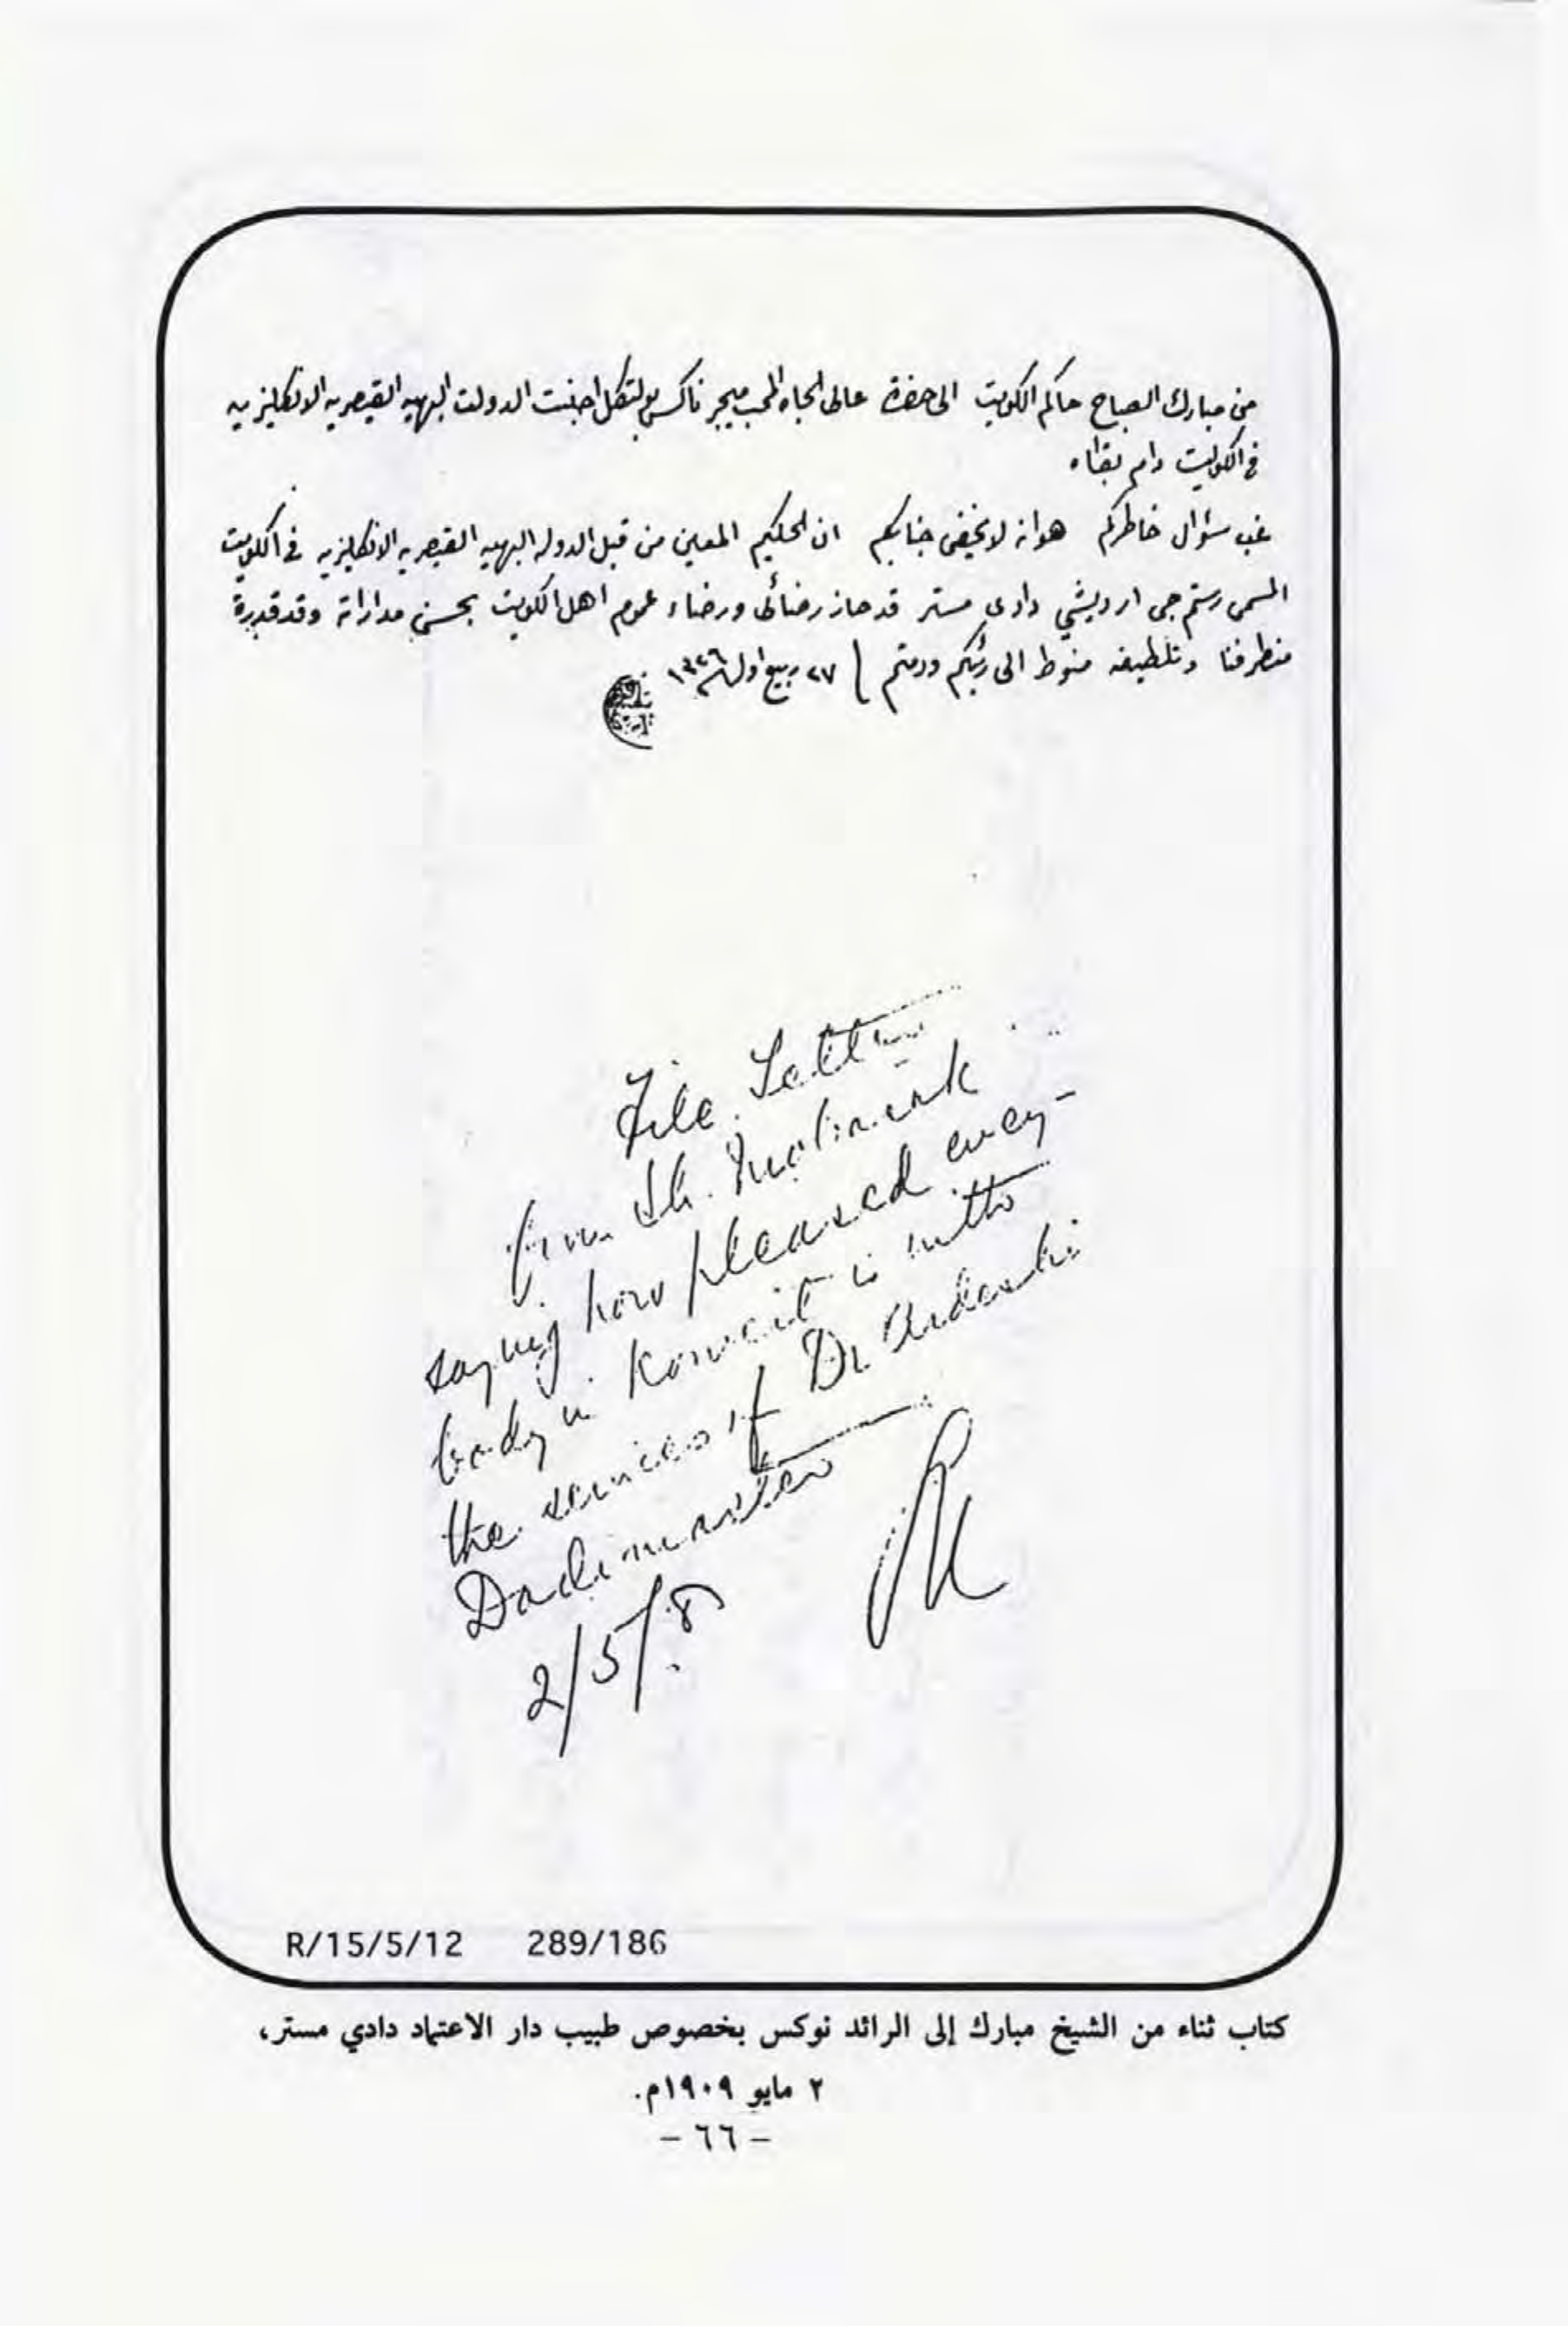 من مبارك الصباح حاكم الكويت الى حضرة عالى الجاه المحب ميجر ناكس بولتكل اجنت الدولت البهيه القيصريه الانكليزيه
في الكويت دام بقاه
غب سؤال خاطركم هو انه لا يخفى جنابكم ان الحكيم المعين من قبل الدوله البهيه القيصريه الانكليزيه في الكويت
المسمى رستم جى ارديشي دادى مستر قد حاز رضائى ورضاء عموم اهل الكويت بحسن مداراته وقد قدره
منطرفنا وتلطيفه منوط الى رئيكم ودمتم ٢٧ ربيع اول ١٣٢٦
File Letter
from Sh. Mubarak
saying how pleased every-
body in Koweit is with
the services of Dr Ardeshi
Dadimaster
2/5/8
R/15/5/12 289/186
كتاب ثناء من الشيخ مبارك إلى الرائد نوكس بخصوص طبيب دار الاعتماد دادي مستر،
٢ مايو ١٩٠٩م.
- ٦٦ -